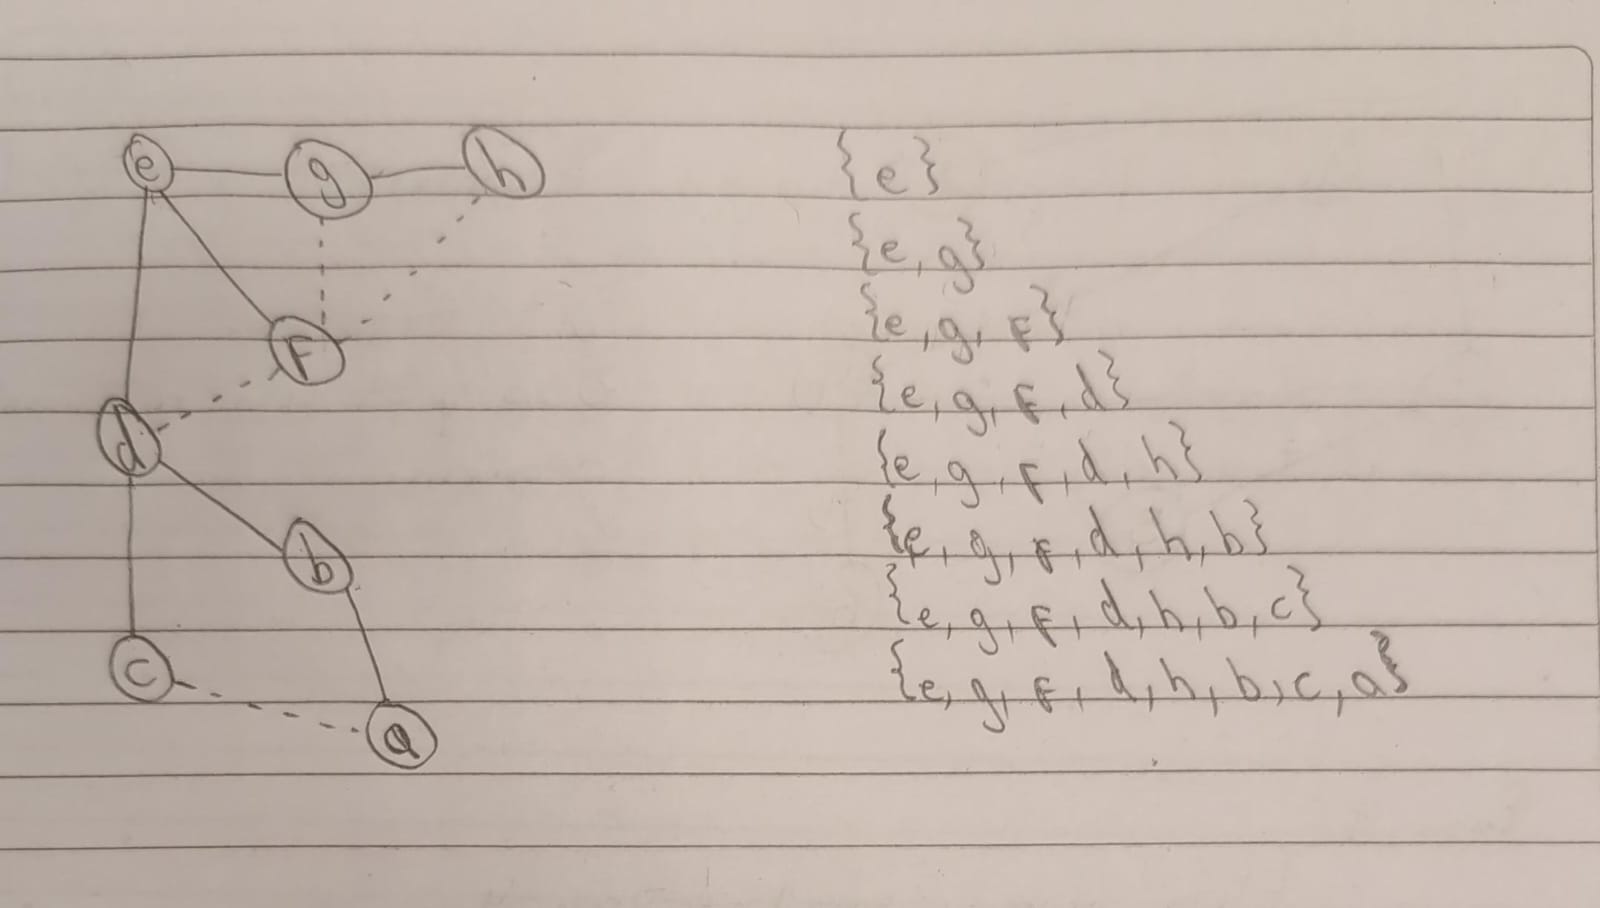 e g h
F
d
b
c
a
{e}
{e, g}
{e, g, F}
{e, g, F, d}
{e, g, F, d, h}
{e, g, F, d, h, b}
{e, g, F, d, h, b, c}
{e, g, F, d, h, b, c, a}